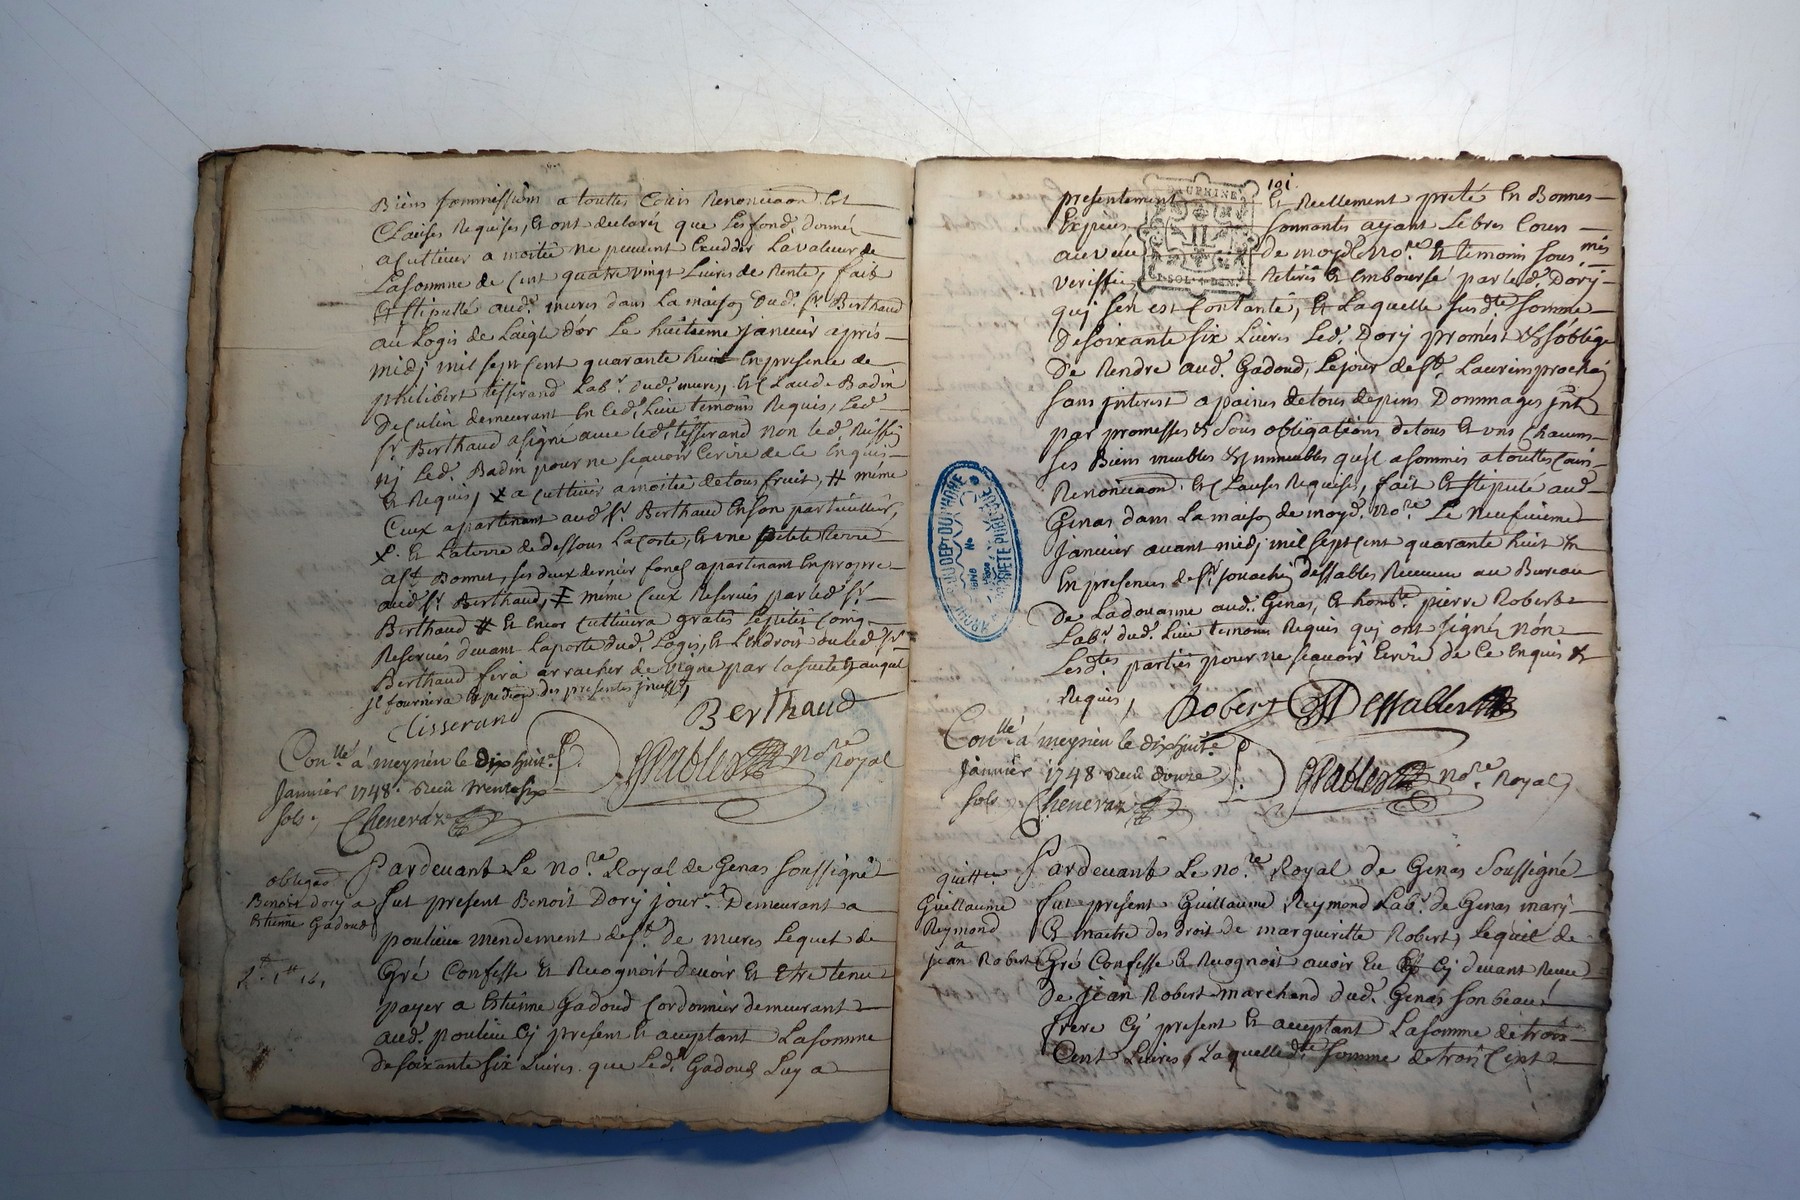 Biens soummission a touttes Cours Renonciaon Et
Clauses Requises, Et ont declarés que Les fonds donnés
a Cultiver a moitié ne peuvent Exceder La valeur de
La somme de Cent quatre vingt Livres de Rente, fait
Et stipullé aud. mures dans La maison dud. sr. Berthaud
au Logis de Laigle dor Le huitieme janvier aprés
midj mil sept Cent quarante huit En presence de
philibert tisserand Labr. dud. mures, Et Claude Badin
de Culin demeurant En led. Lieu temoins Requis, Led.
sr. Berthaud a signé avec led. tisserand non led.
nj Led. Badin pour ne scavoir Ecrire de Ce Enquis
Et Requis, x a Cultiver a moitié de tous fruit, # méme
Ceux apartenant aud. sr. Berthaud En son particullier,
x. Et La terre de dessous La Coste, Et une petite terre
a st. Bonnet, ses deux dernier fonds apartenant En propre
aud. sr. Berthaud, # méme Ceux Reservés par led. sr.
Berthaud # Et Encor Cultivera gratis Le petit Coing
Reservés devant La porte dud. Logis, Et L'endroit ou led. sr.
Berthaud fera arracher de vigne par la suite Et auquel
jl fournira Expedion des presentes
tisserand
Berthaud
Conllé á meyrieu le dixhuite.
Janvier 1748. Receu trente six
sols,
Cheneraz
DSables nore Royal
obligaon
Benoit dorj a
Etienne Gadoud
Pardevant Le nore. Royal de Genas soussigné
fut present Benoit Dorj jourr. Demeurant a
poulieu mendement de st. de mures Lequel de
Gré Confesse Et Recognoit devoir Et Etre tenu
payer a Etienne Gadoud Cordonnier demeurant
aud. poulieu Cy present Et acceptant La somme
de soixante six Livres que Led. Gadoud Luy a
101.
DAUPHINE
II
1. SOL. 4. DEN.
presentement Et Reellement preté En Bonnes
Expeces sonnantes ayant Le bres Cours
au veüe de moyd. nore. Et temoins sous.nés
veriffié Retirés Et Embourse par led. Dorj
quj s'en est Contanté, Et Laquelle susdte. somme
de soixante six Livres Led. Dorj promest Et soblige
de Rendre aud. Gadoud, Le jour de st. Laurein prochain
sans jnterest a paines de tous depens Dommages jnt
par promesses Et sous obligations de tous Et uns Chacuns
ses Biens meubles Et jmmeubles qujl a sommis a touttes Cours
Renonciaon. Et Clauses Requises, fait Et stipulé aud.
Genas dans La maison de moyd. nore. Le neufvieme
janvier avant midj mil sept Cent quarante huit
En presences de sr. jouachin dessables Receveur au Bureau
de La doüanne aud. Genas, Et hombe. pierre Robert
Labr. dud. Lieu temoins Requis quj ont signés non
Lesdtes. parties pour ne scavoir Ecrire de Ce Enquis Et
Requis,
Robert
Dessables
ARCHIVES DU DEPT DU RHONE
PROPRIETE PUBLIQUE
Conllé á meyrieu le dixhuite.
Janvier 1748 receu douze
sols
Cheneraz
DSables nore. Royal
quitte
Guillaume
Reymond
a
jean Robert
Pardevant Le nore. Royal de Genas soussigné
fut present Guillaume Reymond Labr. de Genas marj
Et maitre des droit de marguerite Robert, Lequel de
Gré Confesse Et Recognoit avoir Eu Cy devant Receu
de jean Robert marchand dud. Genas son beau
frere Cy present Et acceptant La somme de trois
Cent Livres, Laquelle dte somme de trois Cent